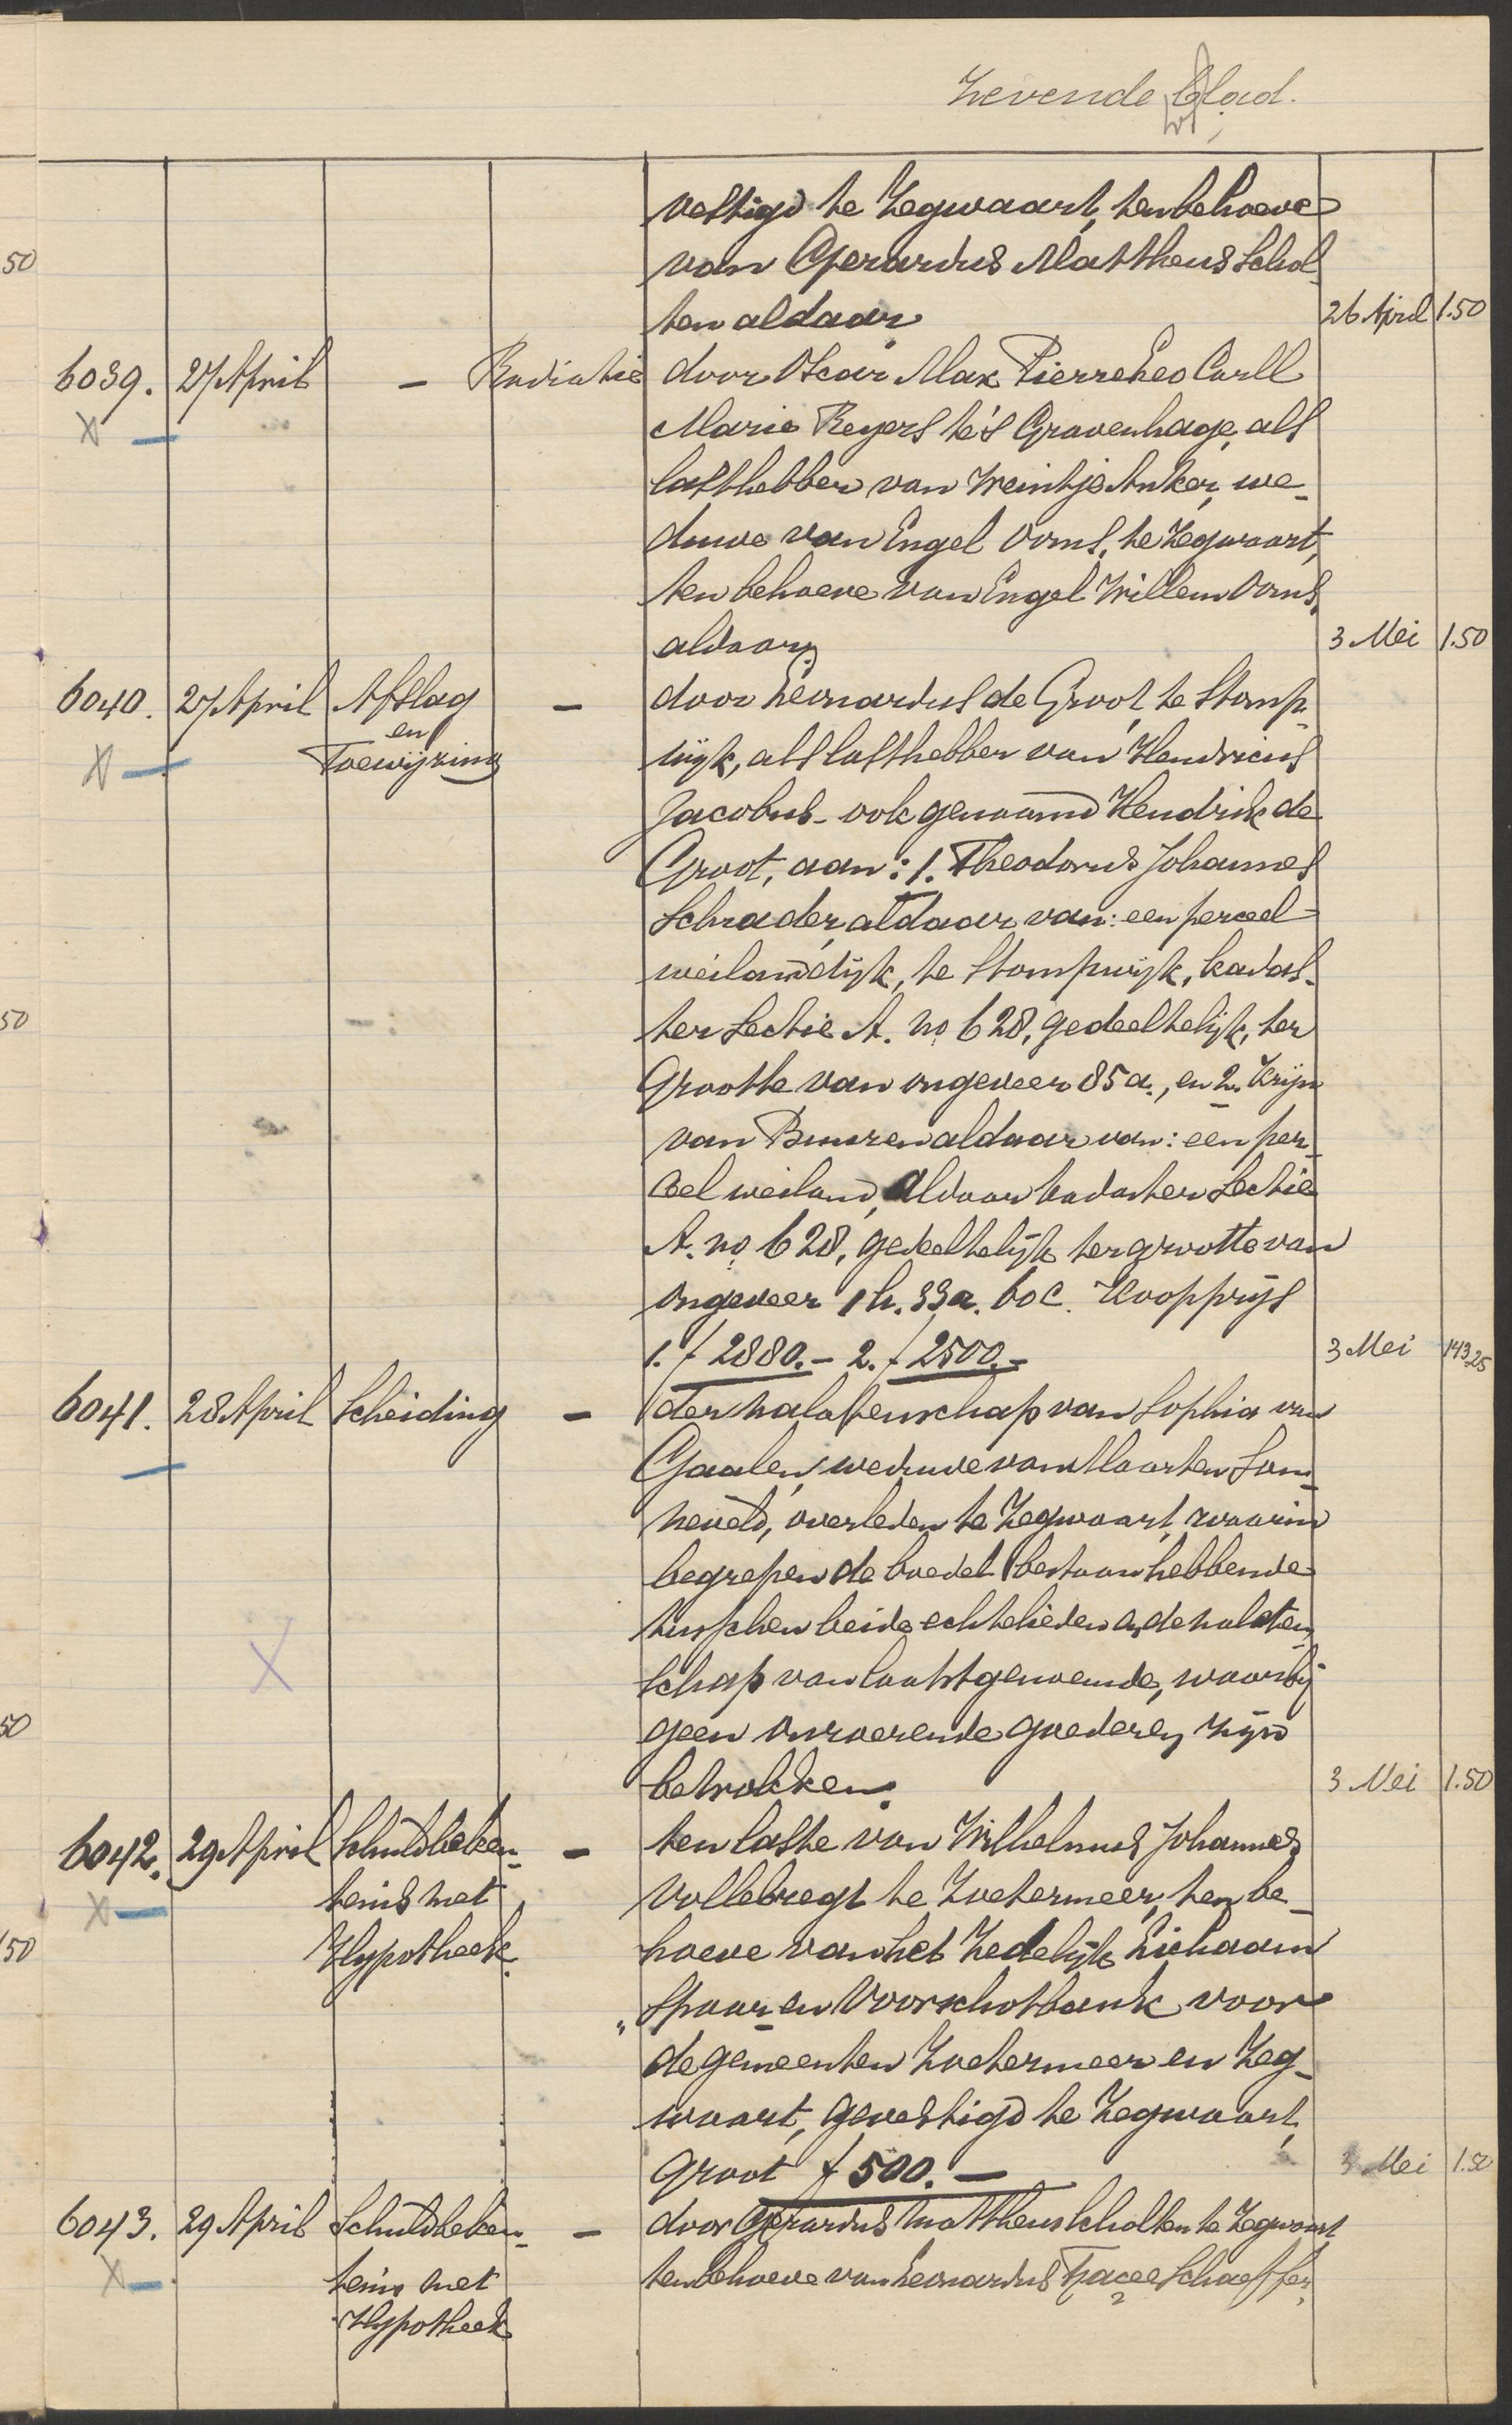 Zevende blad.
vestigd te Zegwaart, ten behoeve
van Gerardus Mattheus Schol-
ten aldaar 26 April 1.50
6039. 27 April - Radiatie door Oscar Max Pierre Leo Carll
Marie Reyers te 's Gravenhage, als
lasthebber van Weintje Anker, we-
duwe van Engel Ooms, te Zegwaart,
ten behoeve van Engel Willem Ooms,
aldaar 3 Mei 1.50
6040. 27 April Afslag - door Leonardus de Groot, te Stomp-
en
Toewijzing wijk, als lasthebber van Hendricus
Jacobus - ook genaamd Hendrik de
Groot, aan: 1. Theodorus Johannes
Schrader, aldaar van: een perceel
weilanddijk, te Stompwijk, kadas-
ter Sectie A. no 628, gedeeltelijk, ter
Grootte van ongeveer 85 a., en 2. Krijn
van Buuren aldaar van: een per-
ceel weiland, aldaar kadaster Sectie
A. no 628, gedeeltelijk ter grootte van
ongeveer 1 h. 33 a. 60 c. Koopprijs
1. f 2880.- 2. f 2500.- 3 Mei 143.25
6041. 28 April Scheiding - der nalatenschap van Sophia van
Gaalen, weduwe van Maarten Son-
neveld, overleden te Zegwaart, waarin
begrepen de boedel bestaan hebbende
tusschen beide echtelieden en de nalaten-
schap van laatstgenoemde, waarbij
geen onroerende goederen zijn
betrokken. 3 Mei 1.50
6042. 29 April Schuldbeken- - ten laste van Wilhelmus Johannes
tenis met Vollebregt te Zoetermeer, ten be-
Hypotheek. hoeve van het Zedelijk Lichaam
"Spaar en Voorschotbank voor
de gemeenten Zoetermeer en Zeg-
waart, gevestigd te Zegwaart,
Groot f 500.- 3 Mei 1.50
6043. 29 April Schuldbeken- - door Gerardus Mattheus Scholten te Zegwaart
tenis met ten behoeve van Leonardus Schaeffer,
Hypotheek